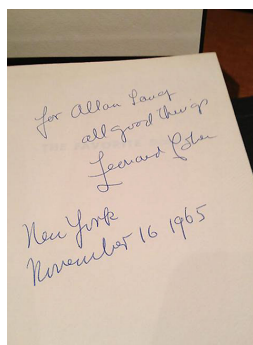 for Allan Lang
all good things
Leonard Cohen
New York
November 16 1965